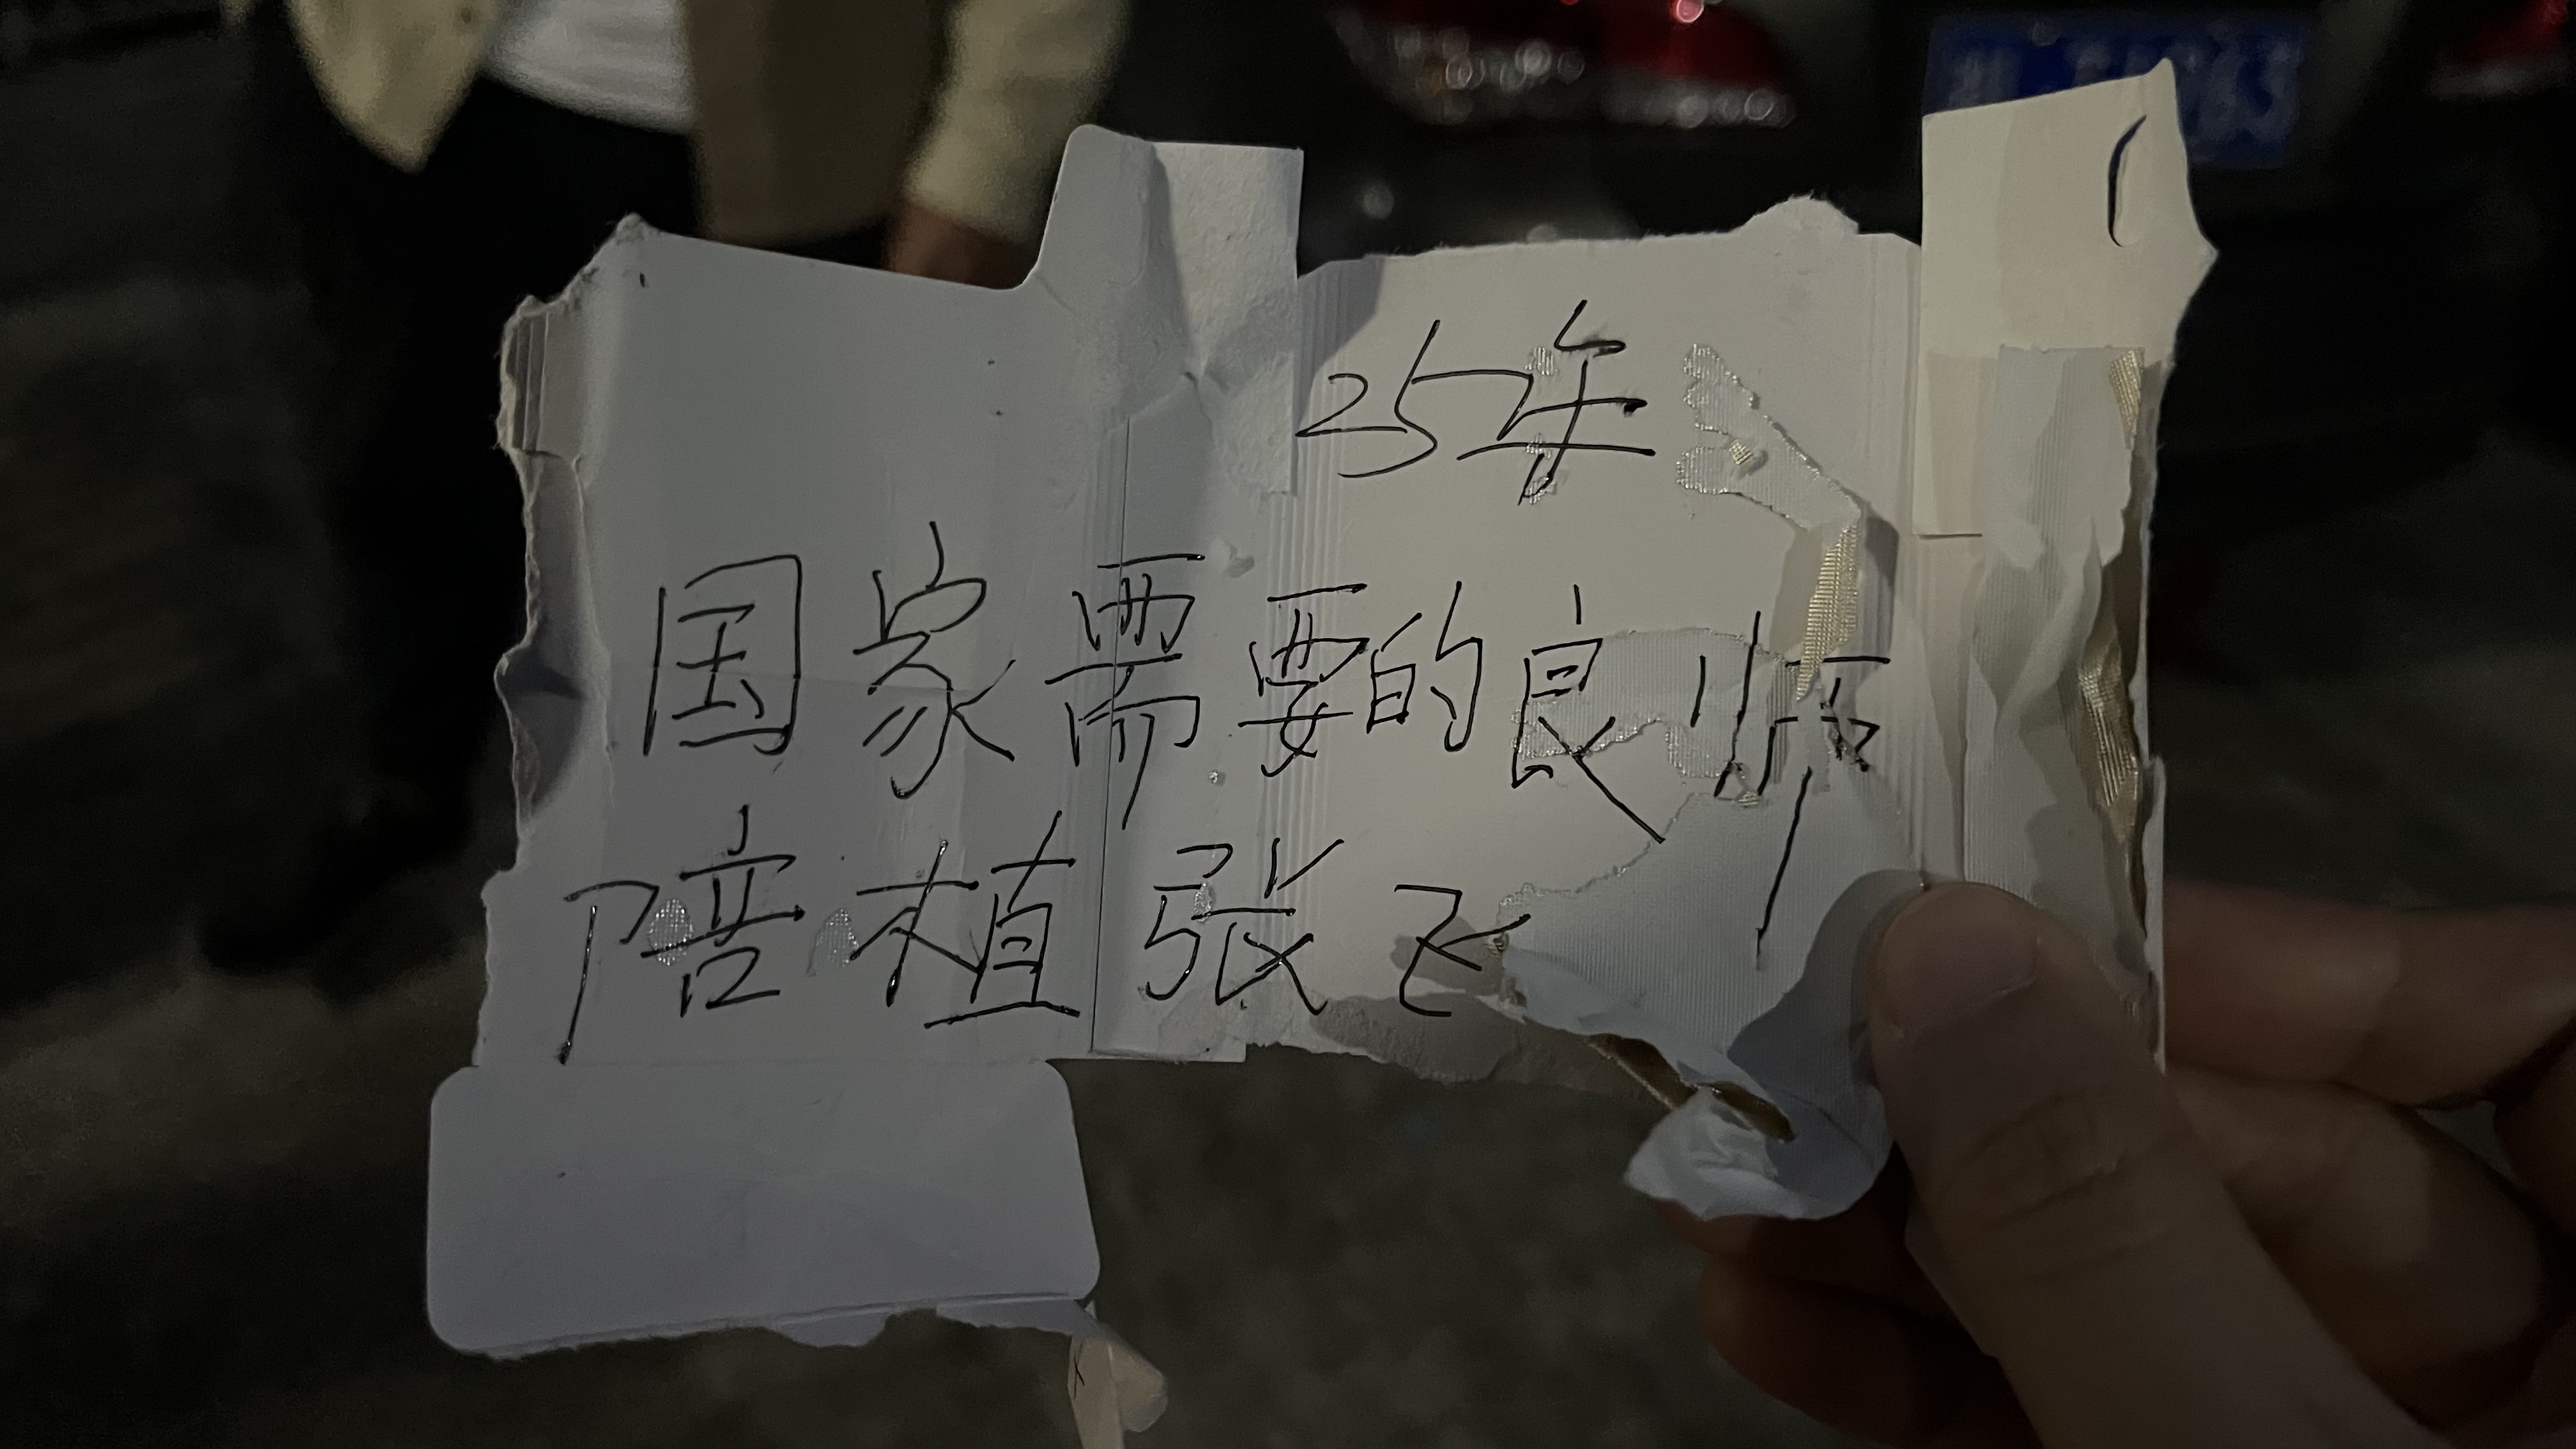 25年
国家需要的良师
陪植张飞